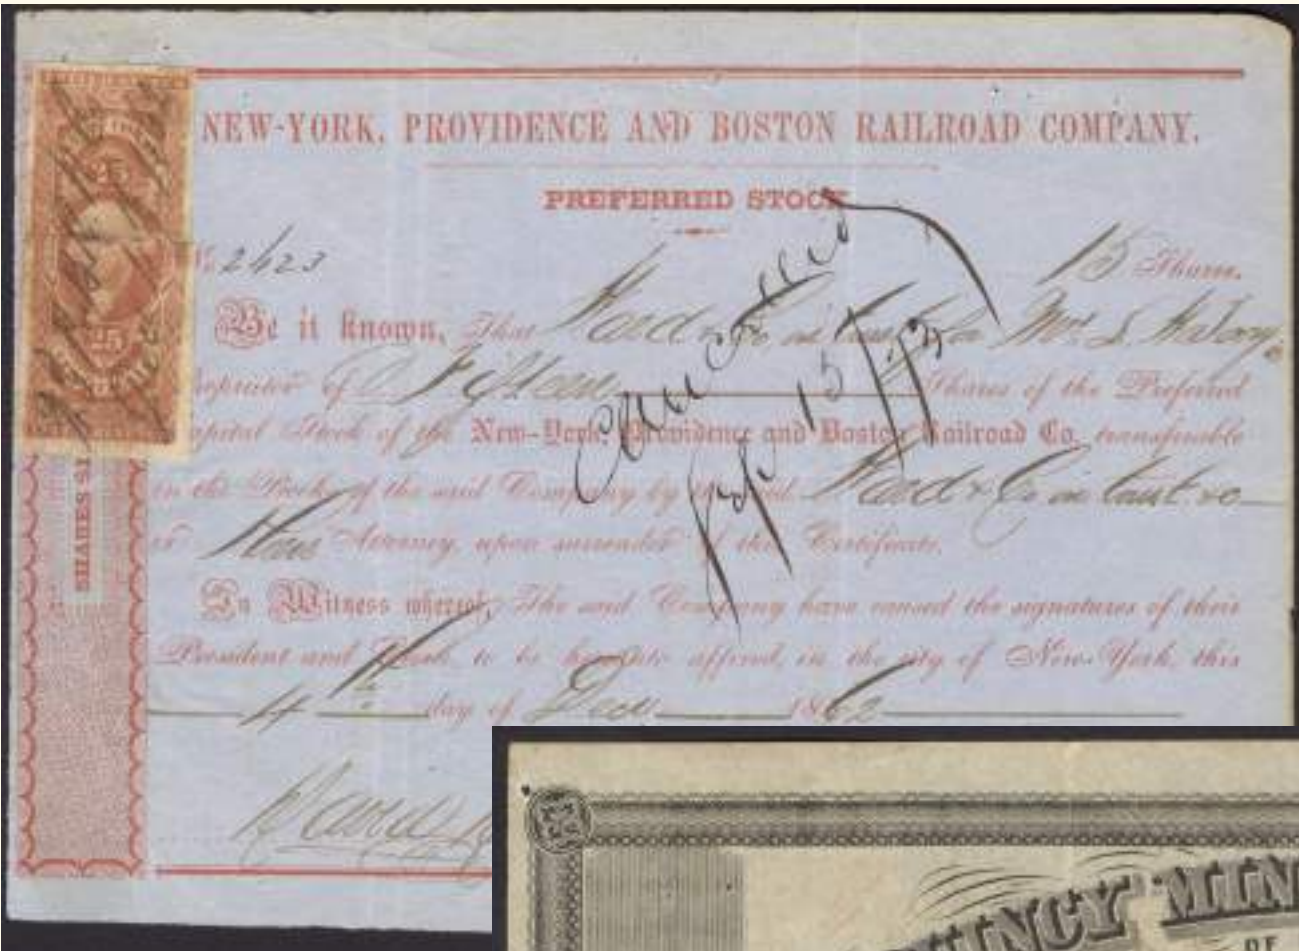 NEW-YORK, PROVIDENCE AND BOSTON RAILROAD COMPANY.
PREFERRED STOCK
25
No 2423
15 Shares.
Be it known, That Ward & Co in trust for Mrs S
25
Proprietor of Fifteen Shares of the Preferred
Capital Stock of the New-York, Providence and Boston Railroad Co. transferable
on the Books of the said Company by the said Ward & Co in trust &c
or their Attorney, upon surrender of this Certificate.
Cancelled
15
SHARES
In Witness whereof, The said Company have caused the signatures of their
President and to be hereunto affixed, in the city of New-York, this
4th day of Dec 1862
David
QUINCY MIN
OF